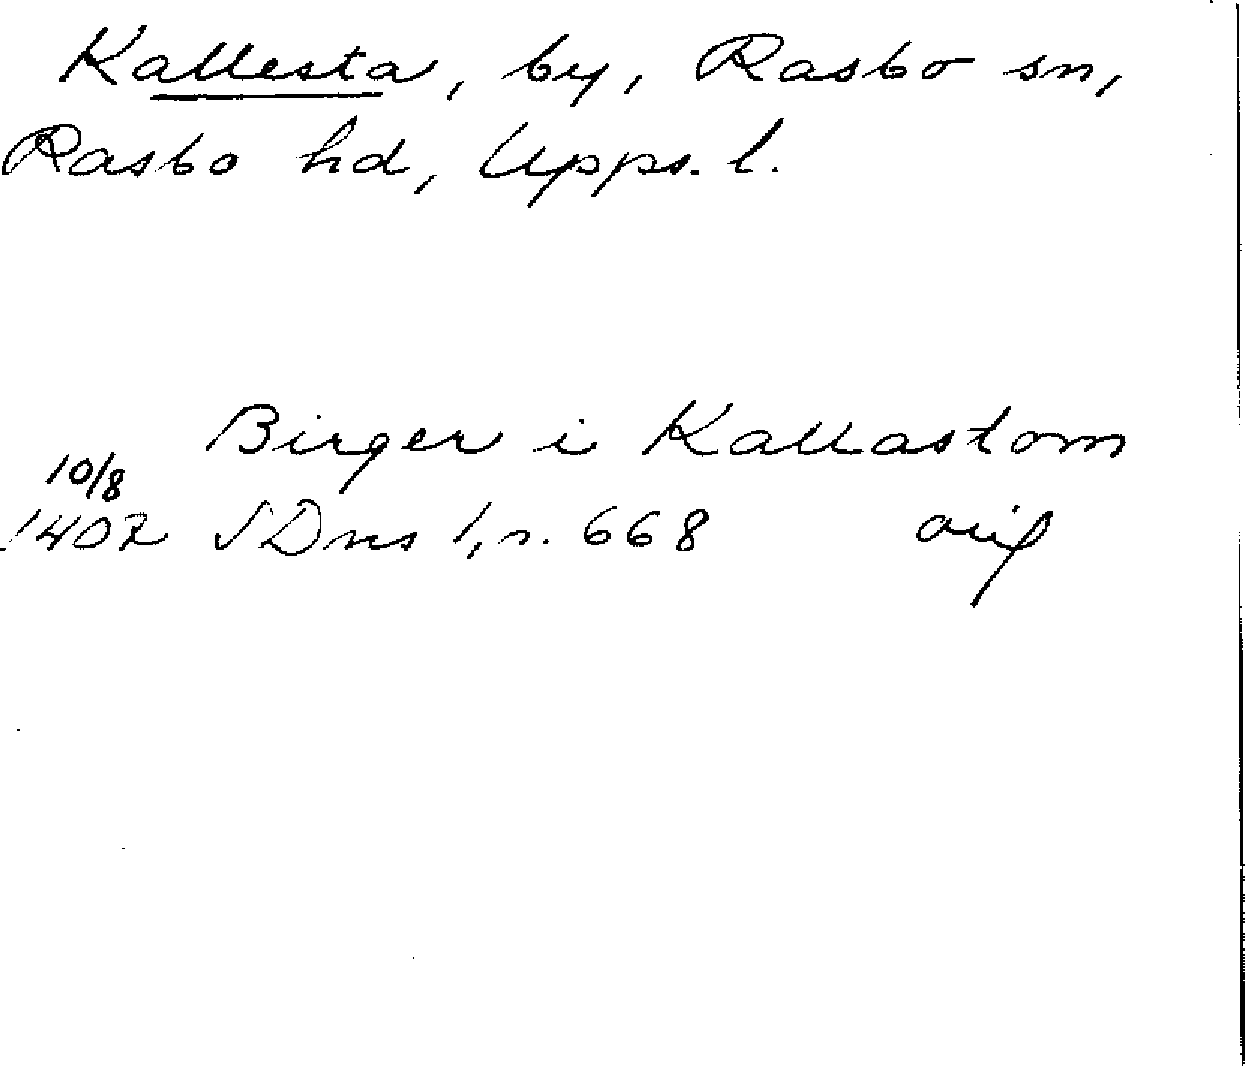 Kallesta, by, Rasbo sn,
Rasbo hd, Upps. l.
Birger i Kallastom
10/8
1402 SDns 1, s. 668 orig